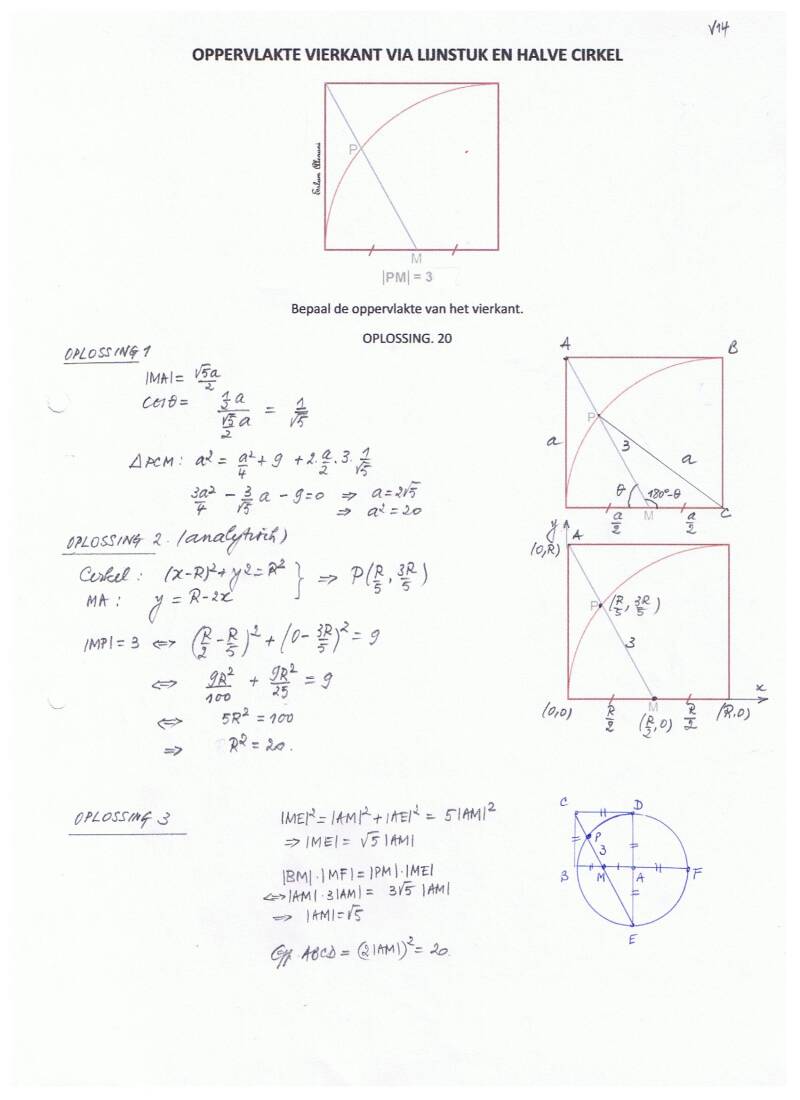 V14
OPPERVLAKTE VIERKANT VIA LIJNSTUK EN HALVE CIRKEL
P
M
|PM| = 3
Bepaal de oppervlakte van het vierkant.
OPLOSSING. 20
OPLOSSING 1
|MA| = √5a/2
cos θ = (1/2 a)/(√5/2 a) = 1/√5
ΔPCM: a² = a²/4 + 9 + 2·a/2·3·1/√5
3a²/4 - 3/√5 a - 9 = 0 ⇒ a = 2√5
⇒ a² = 20
A
B
P
3
a
a
θ
180°-θ
a/2
M
a/2
C
OPLOSSING 2. (analytisch)
Cirkel: (x-R)² + y² = R²
MA: y = R-2x
} ⇒ P(R/5, 3R/5)
|MP| = 3 ⇔ (R/2 - R/5)² + (0 - 3R/5)² = 9
⇔ 9R²/100 + 9R²/25 = 9
⇔ 5R² = 100
⇒ R² = 20.
y
A
(0,R)
P
(R/5, 3R/5)
3
x
(0,0)
R/2
M
(R/2, 0)
R/2
(R,0)
OPLOSSING 3
|ME|² = |AM|² + |AE|² = 5|AM|²
⇒ |ME| = √5 |AM|
|BM|·|MF| = |PM|·|ME|
⇔ |AM|·3|AM| = 3√5 |AM|
⇒ |AM| = √5
Opp. ABCD = (2|AM|)² = 20.
C
D
P
3
B
M
A
F
E